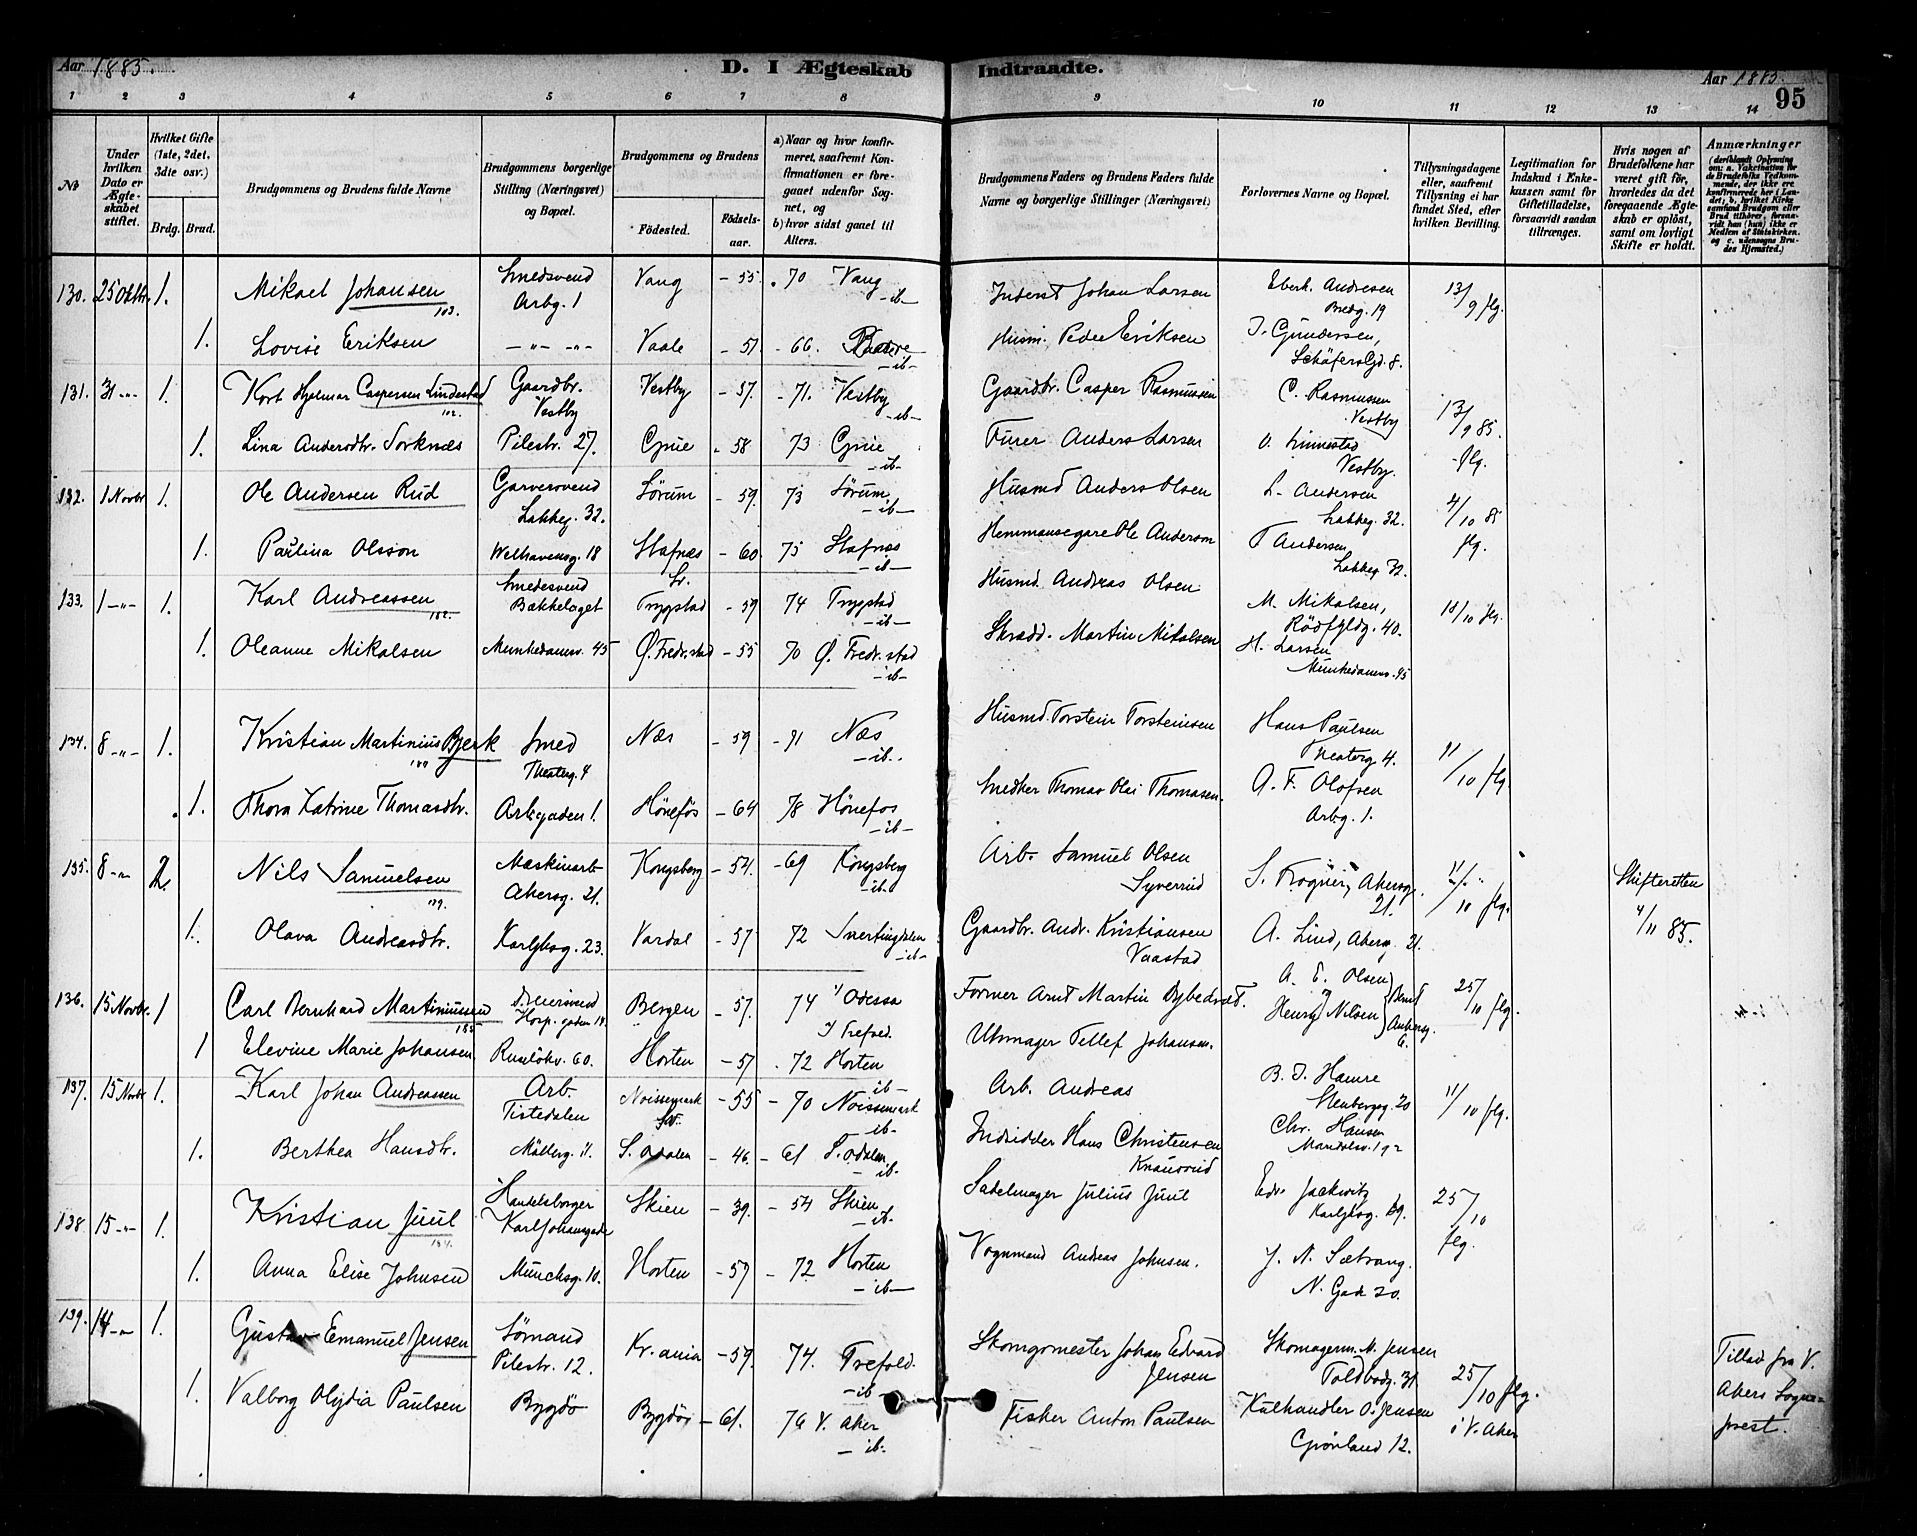 Aar 1885.
D. I Ægteskab Indtraadte.
Aar 1885.
95
1 2 3 4 5 6 7 8 9 10 11 12 13 14
No
Under hvilken Dato er Ægteskabet stiftet.
Hvilket Gifte (1ste, 2det, 3die osv.)
Brdg. Brud.
Brudgommens og Brudens fulde Navne
Brudgommens borgerlige Stilling (Næringsvei) og Bopæl.
Brudgommens og Brudens
Fødested.
Fødsels-aar.
a) Naar og hvor konfirmeret, saafremt Konfirmationen er foregaaet udenfor Sognet, og
b) hvor sidst gaaet til Alters.
Brudgommens Faders og Brudens Faders fulde Navne og borgerlige Stillinger (Næringsvei)
Forlovernes Navne og Bopæl.
Tillysningsdagene eller, saafremt Tillysning ei har fundet Sted, efter hvilken Bevilling.
Legitimation for Indskud i Enkekassen samt for Giftetilladelse, forsaavidt saadan tiltrænges.
Hvis nogen af Brudefolkene har været gift før, hvorledes da det foregaaende Ægteskab er opløst, samt om lovligt Skifte er holdt.
Anmærkninger
130. 25 Oktbr. 1. Mikael Johansen Smedsvend Arbg. 1 Vang - 55. 70 Vang -ib- Inderst Johan Larsen Eberh. Andresen Bredg. 19 13/9 flg.
1. Lovise Eriksen -"- -"- Vaale - 51. - 66. -ib- Husm. Peder Eriksen J. Gundersen, Schäfersgd. 8.
131. 31 -"- 1. Kort Hjalmar Caspersen Lindestad Gaardbr. Vestby Vestby - 57. - 71. Vestby -ib- Gaardbr. Casper Rasmussen C. Rasmussen Vestby 13/9 85.
1. Lina Andersdtr. Sorknæs Pilestr. 27. Grue - 58 73 Grue -ib- Anders Larsen Vestby. flg.
132. 1 Novbr 1. Ole Andersen Rud Garversvend Lakkeg. 32. Sørum - 59. 73 Sørum -ib- Husmd Anders Olsen L. Andersen Lakkeg. 32. 4/10 85
1. Paulina Olsson Welhavensg. 18 Stafnæs - 60. 75 Stafnæs -ib- Hemmansegare Ole Anderson T Andersen Lakkeg 32. flg.
133. 1 -"- 1. Karl Andreassen 182. Smedesvend Bækkelaget Trygstad - 59 74 Trygstad -ib- Husmd. Andreas Olsen M. Mikalsen, Rödfyldg. 40. 18/10 flg.
1. Oleanne Mikalsen Munkedamsv. 45 Ø. Fredr.stad - 55 70 Ø. Fredr.stad -ib- Skrædd. Martin Mikalsen H. Larsen Munkedamsv. 45
134. 8 -"- 1. Kristian Martinius Bjerk Smed Theaterg. 4 Næs - 59 Næs -ib- Husmd. Torstein Torsteinsen Hans Paulsen Theaterg 4. 11/10 flg.
1. Thora Katrine Thomasdtr. Arbgaden 1. Hönefos - 64 78 Hönefos -ib- Snedker Thomas Olai Thomasen. A. F. Olofsen Arbg. 1.
135. 8 -"- 2. Nils Samuelsen Maskinarb Akersg. 21. Kongsberg - 54. - 69 Kongsberg -ib- Arb. Samuel Olsen Syverud S. Frogner, Akersg. 21. 11/10 flg. Skifteretten 4/11 85.
1. Olava Andreasdtr. Karljhsg. 23. Vardal - 57 72 Snertingdalen -ib- Gaardbr. Andr. Kristiansen Vaastad A. Lind, Akersg. 21.
136. 15 Novbr. 1 Carl Bernhard Martiniussen Dreiersvend Hosp. gaden 14. Bergen - 57. 74 Odessa Trefold. Former Arnt Martin A. E. Olsen 25/10 flg.
1 Elevine Marie Johansen Ruselökv. 60. Horten - 57 72 Horten -ib- Uhrmager Tellef Johansen. Henry Nilsen
137. 15 Novbr 1. Karl Johan Andreassen Arb. Tistedalen Noissemark - 55 - 70 Noissemark -ib- Arb. Andreas B. J. Hamre Stenbergg. 20 11/10 flg.
1. Berthea Hansdtr. Möllerg. 11. S. Odalen - 46. - 61 S. Odalen -ib- Hans Christensen Knausrud Chr. Hansen Maridalsv. 192
138. 15 -"- 1. Kristian Juul Handelsborger Karl Johansgade Skien - 39. - 54 Skien -ib- Sadelmager Julius Juul Edv. Jackwitz Karljhsg. 25/10 flg.
1. Anna Elise Johnsen Munchsg. 10. Horten - 57 - 72 Horten -ib- Vognmand Andreas Johnsen. J. N. Sætrang. N. Gade 20.
139. 14 -"- 1. Gustav Emanuel Jensen Sömand Pilestr. 12. Kr.ania - 59. 74. Trefold. -ib- Skomagermester Johan Edvard Jensen Skomagerm. N. Jensen Toldbodg. 31. 25/10 flg. Tillad. fra V. Akers Sogneprest.
1. Valborg Olydia Paulsen Bygdö Bygdö - 61. 76 V. Aker -ib- Fisker Anton Paulsen Kulhandler O. Jensen i V. Aker Grönland 12.